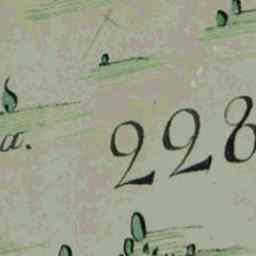 a.
228